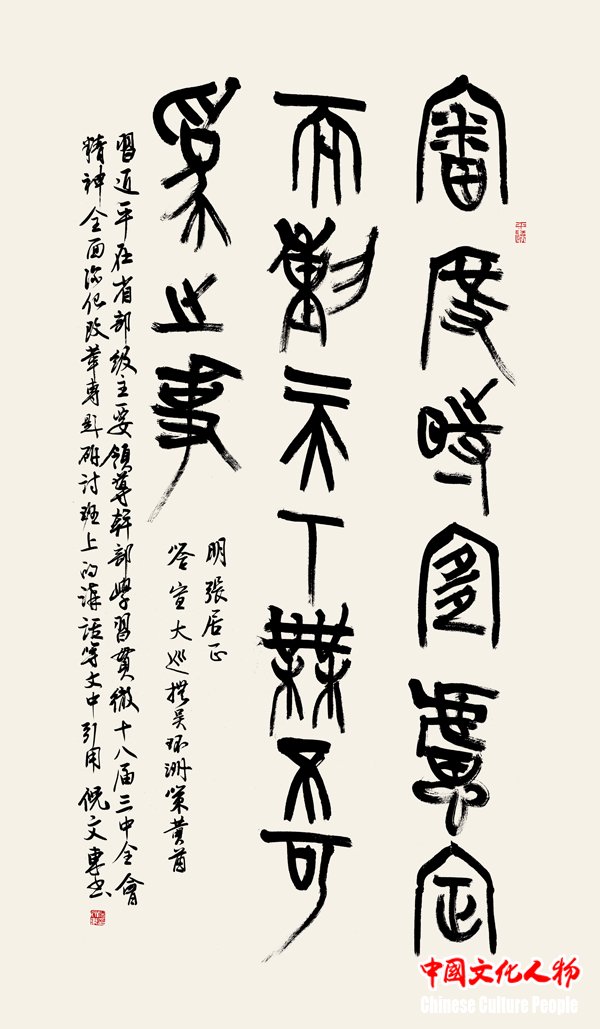 審度時宜慮定
而動天下無不可
爲之事
明張居正
答宣大巡撫吳環洲策黃酋
習近平在省部級主要領導幹部學習貫徹十八届三中全會
精神全面深化改革專題研討班上的講話等文中引用 倪文東书
中國文化人物
Chinese Culture People